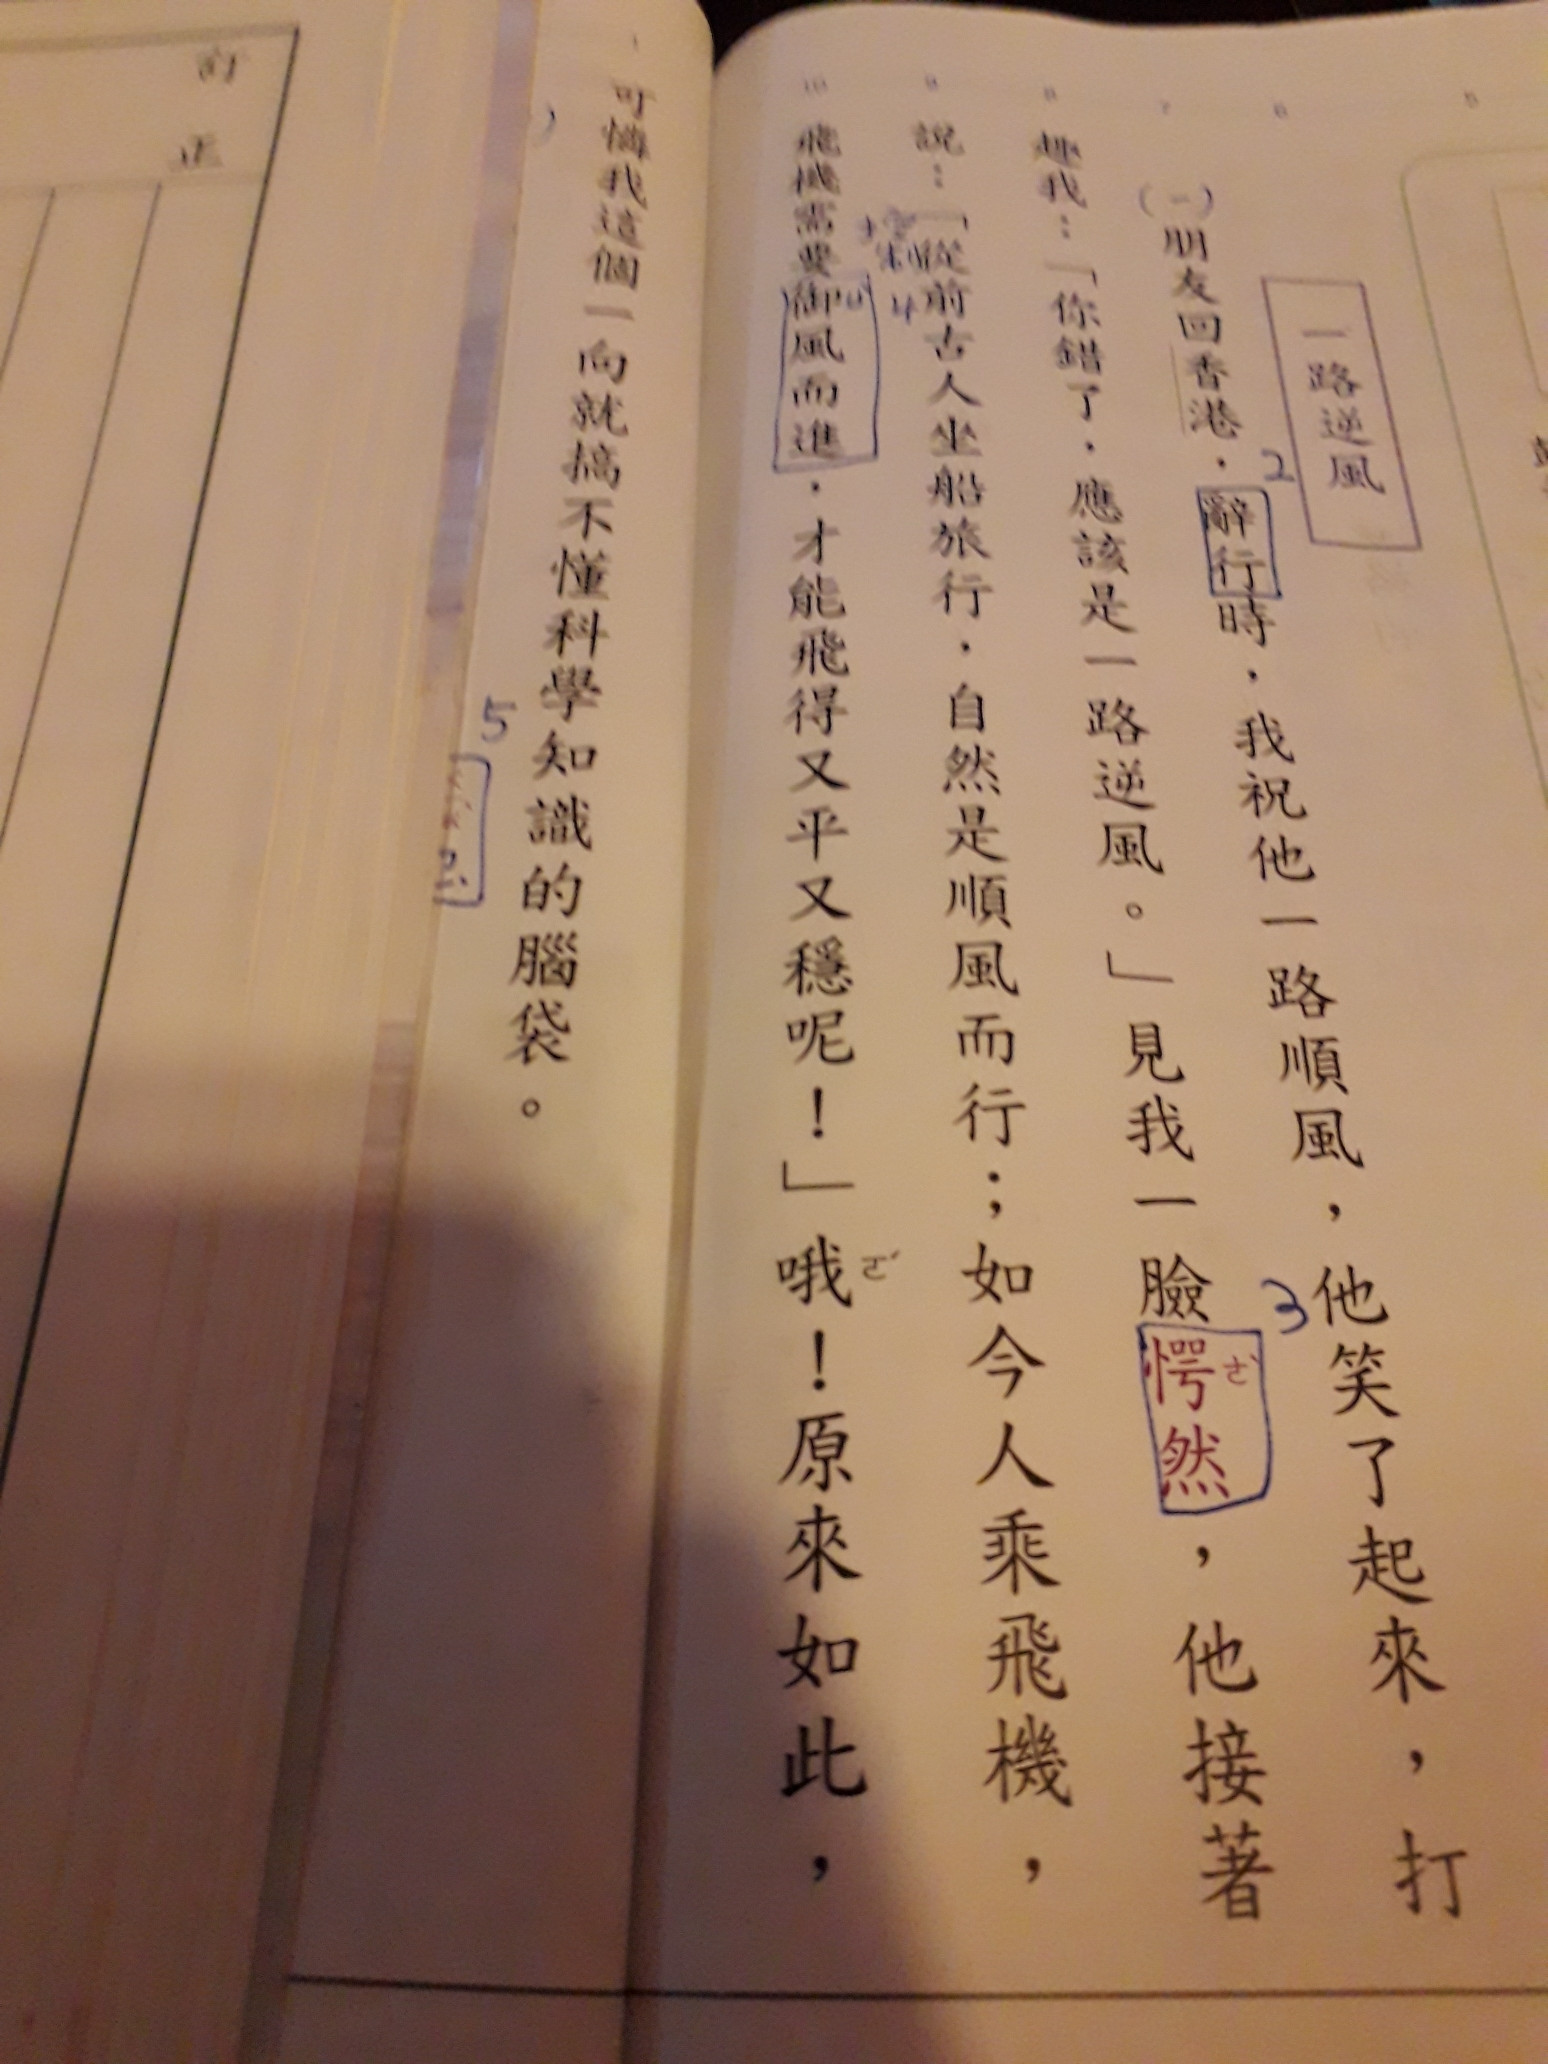 一路逆風
(一)朋友回香港，辭行時，我祝他一路順風，他笑了起來，打
趣我：「你錯了，應該是一路逆風。」見我一臉愕然，他接著
說：「從前古人坐船旅行，自然是順風而行；如今人乘飛機，
飛機需要御風而進，才能飛得又平又穩呢！」哦！原來如此，
可憐我這個一向就搞不懂科學知識的腦袋。
訂正
5
6
7
8
9
10
1
2
3
4
5
ㄜˋ
ㄛˊ
ㄩˋ
控制